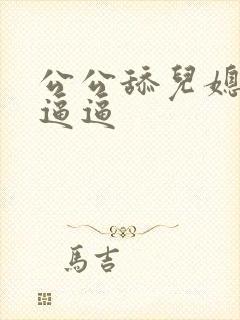 公公舔兒媳
逼逼
馬吉